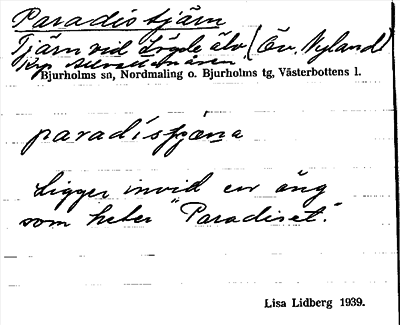 Paradistjärn
Tjärn vid Lögde älv (Öv. Nyland)
Krp
Bjurholms sn, Nordmaling o. Bjurholms tg, Västerbottens l.
paradis
Ligger invid en äng
som heter "Paradiset".
Lisa Lidberg 1939.